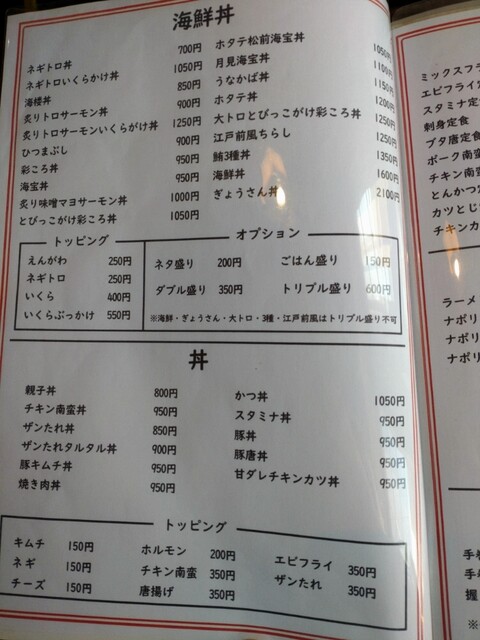 海鮮丼
ネギトロ丼 700円
ネギトロいくらかけ丼 1050円
海楼丼 850円
炙りトロサーモン丼 900円
炙りトロサーモンいくらがけ丼 1250円
ひつまぶし 900円
彩ころ丼 950円
海宝丼 950円
炙り味噌マヨサーモン丼 1000円
とびっこがけ彩ころ丼 1050円
ホタテ松前海宝丼 1050円
月見海宝丼 1100円
うなかば丼 1150円
ホタテ丼 1200円
大トロとびっこがけ彩ころ丼 1250円
江戸前風ちらし 1250円
鮪3種丼 1350円
海鮮丼 1600円
ぎょうさん丼 2100円
トッピング
えんがわ 250円
ネギトロ 250円
いくら 400円
いくらぶっかけ 550円
オプション
ネタ盛り 200円 ごはん盛り 150円
ダブル盛り 350円 トリプル盛り 600円
※海鮮・ぎょうさん・大トロ・3種・江戸前風はトリプル盛り不可
丼
親子丼 800円
チキン南蛮丼 950円
ザンたれ丼 850円
ザンたれタルタル丼 900円
豚キムチ丼 950円
焼き肉丼 950円
かつ丼 1050円
スタミナ丼 950円
豚丼 950円
豚唐丼 950円
甘ダレチキンカツ丼 950円
トッピング
キムチ 150円 ホルモン 200円 エビフライ 350円
ネギ 150円 チキン南蛮 350円 ザンたれ 350円
チーズ 150円 唐揚げ 350円
ミックスフラ
エビフライ定
スタミナ定
刺身定食
ブタ唐定食
ポーク南蛮
チキン南蛮
とんかつ定
カツとじ
チキンカ
ラーメ
ナポリ
ナポリ
ナポ
手巻
手巻
握
※